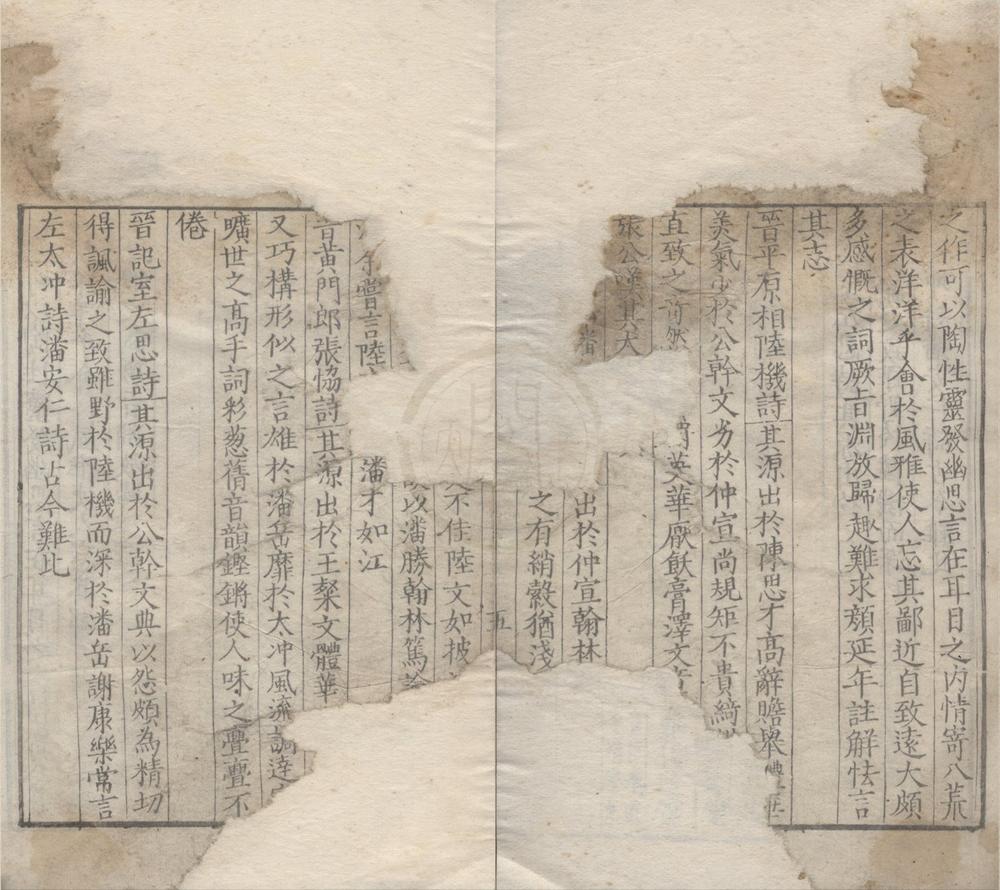 之作可以陶性靈發幽思言在耳目之内情寄八荒
之表洋洋乎會於風雅使人忘其鄙近自致遠大頗
多感慨之詞厥旨淵放歸趣難求顔延年註解怯言
其志
晉平原相陸機詩其源出於陳思才高辭贍舉
美氣少於公幹文劣於仲宣尚規矩不貴綺
直致之 英華厭飫膏澤文
張公嘆其大
出於仲宣翰林
之有綃縠猶淺
五
不佳陸文如披
以潘勝翰林篤論
余嘗言陸 潘才如江
晉黃門郎張協詩其源出於王粲文體華
又巧構形似之言雄於潘岳靡於太冲風流調達
曠世之高手詞彩葱蒨音韻鏗鏘使人味之亹亹不
倦
晉記室左思詩其源出於公幹文典以怨頗為精切
得諷諭之致雖野於陸機而深於潘岳謝康樂常言
左太冲詩潘安仁詩古今難比